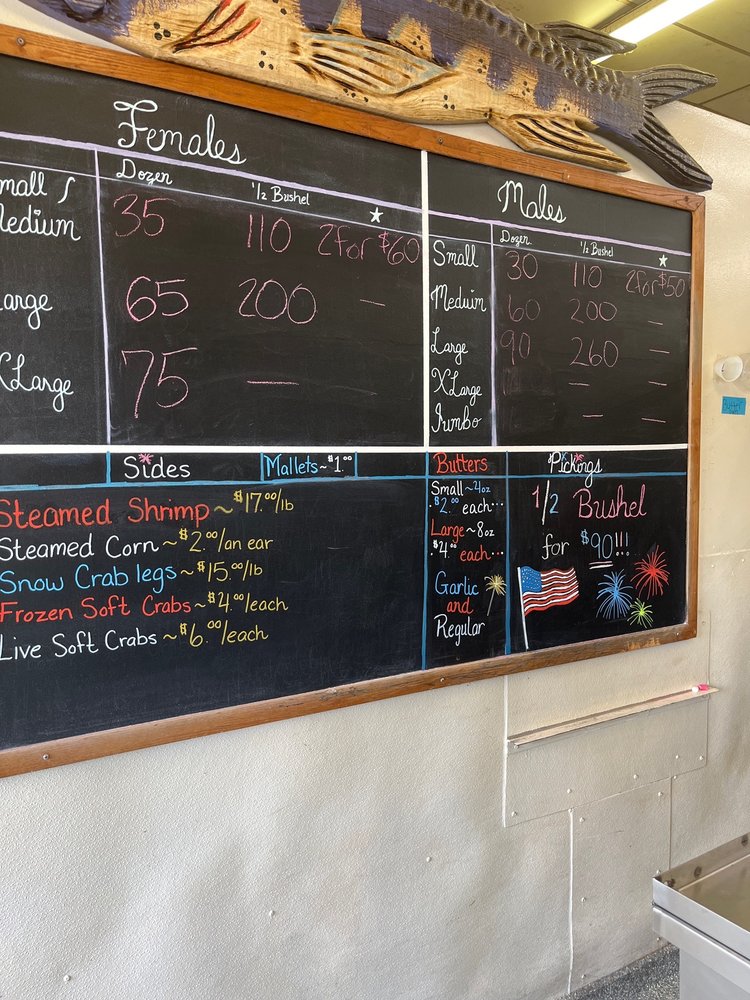 Females
Dozen 1/2 Bushel ☆
mall /
Medium 35 110 2 for $60
arge 65 200 —
XLarge 75 —
Males
Dozen 1/2 Bushel ☆
Small 30 110 2 for $50
Meduim 60 200 —
Large 90 260 —
XLarge — —
Jumbo — —
Sides
Mallets ~ $1.00
Steamed Shrimp ~ $17.00/lb
Steamed Corn ~ $2.00/an ear
Snow Crab legs ~ $15.00/lb
Frozen Soft Crabs ~ $4.00/each
Live Soft Crabs ~ $6.00/each
Butters
Small ~ 4oz
$2.00 each...
Large ~ 8oz
$4.00 each...
Garlic
and
Regular
Pickings
1/2 Bushel
for $90!!!